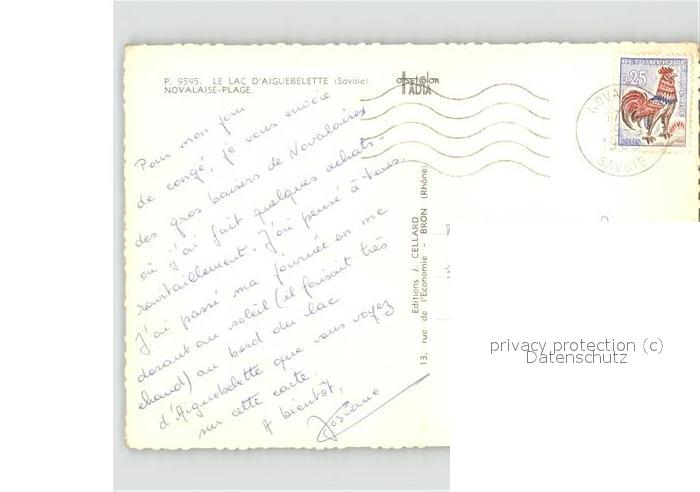 P. 9595. LE LAC D'AIGUEBELETTE (Savoie).
NOVALAISE-PLAGE.
offset Color
IADIA
0,25
NOVA
SAVOIE
Pour mon jour
de congé, je vous envoie
des gros baisers de Novalaise
où j'ai fait quelques achats-
ravitaillement. J'ai pensé à tous.
J'ai passé ma journée en me
dorant au soleil (il faisait très
chaud) au bord du lac
d'Aiguebelette que vous voyez
sur cette carte.
A bientôt,
Josiane
Editions J. CELLARD
13, rue de l'Economie - BRON (Rhône)
privacy protection (c)
Datenschutz